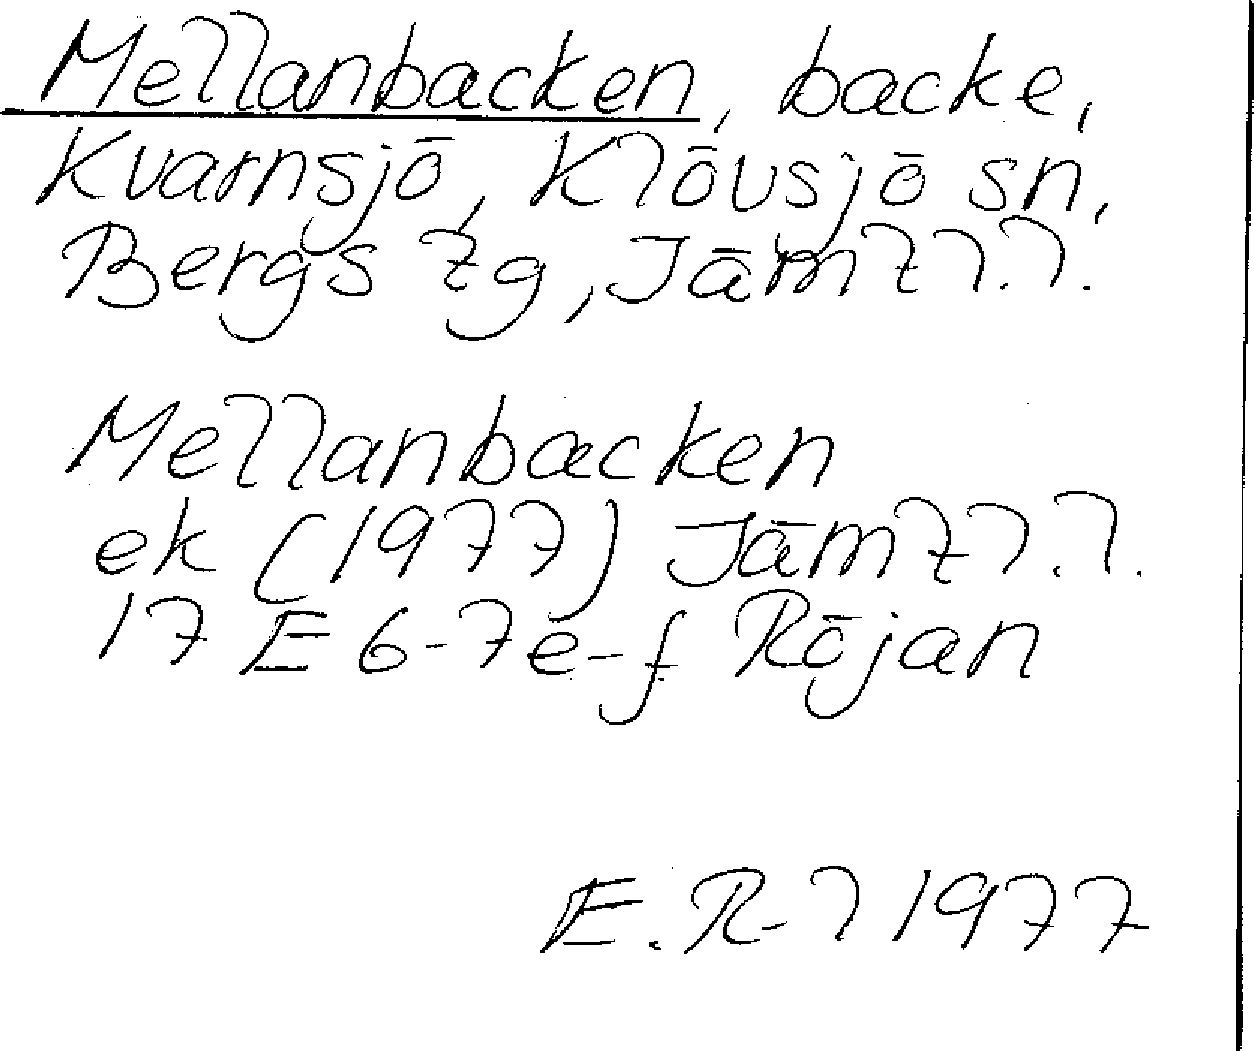 Mellanbacken, backe,
Kvarnsjö, Klövsjö sn,
Bergs tg, Jämtl.l.
Mellanbacken
ek (1977) Jämtl.l.
17 E 6-7e-f Röjan
E.R-l 1977